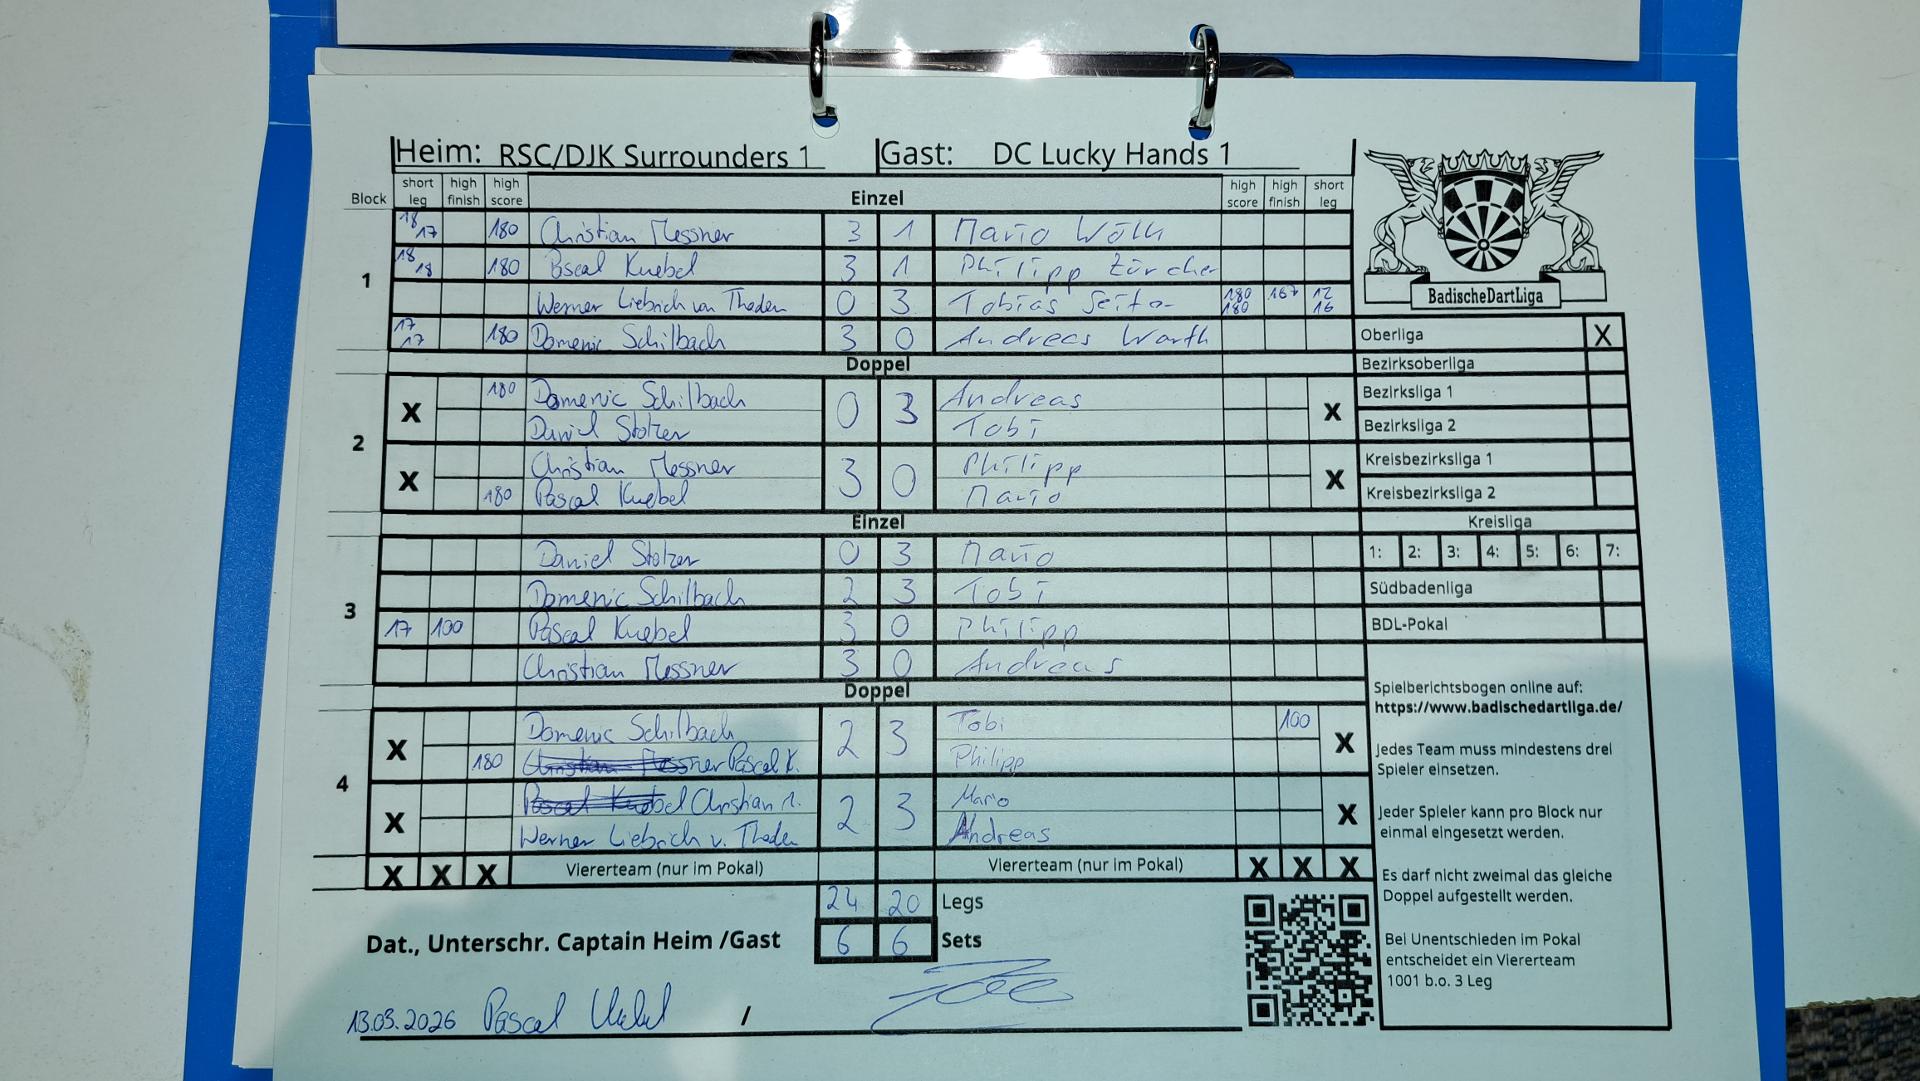 Heim: RSC/DJK Surrounders 1 Gast: DC Lucky Hands 1
Block short leg high finish high score Einzel high score high finish short leg
1
18 17 180 Christian Messner 3 1 Mario Wöth
18 18 180 Pascal Knebel 3 1 Philipp Zürcher
Werner Liebrich von Theden 0 3 Tobias 180 180 167 12 16
17 17 180 Domenic Schilbach 3 0 Andreas Warth
Doppel
2
X 180 Domenic Schilbach 0 3 Andreas X
Daniel Stolzer Tobi
X Christian Messner 3 0 Philipp X
180 Pascal Knebel Mario
Einzel
3
Daniel Stolzer 0 3 Mario
Domenic Schilbach 2 3 Tobi
17 100 Pascal Knebel 3 0 Philipp
Christian Messner 3 0 Andreas
Doppel
4
X Domenic Schilbach 2 3 Tobi 100 X
180 Christian Messner Pascal K. Philipp
X Pascal Knebel Christian M. 2 3 Mario X
Werner Liebrich v. Theden Andreas
X X X Viererteam (nur im Pokal) Viererteam (nur im Pokal) X X X
24 20 Legs
Dat., Unterschr. Captain Heim /Gast 6 6 Sets
13.03.2026 Pascal Knebel /
BadischeDartLiga
Oberliga X
Bezirksoberliga
Bezirksliga 1
Bezirksliga 2
Kreisbezirksliga 1
Kreisbezirksliga 2
Kreisliga
1: 2: 3: 4: 5: 6: 7:
Südbadenliga
BDL-Pokal
Spielberichtsbogen online auf:
https://www.badischedartliga.de/
Jedes Team muss mindestens drei
Spieler einsetzen.
Jeder Spieler kann pro Block nur
einmal eingesetzt werden.
Es darf nicht zweimal das gleiche
Doppel aufgestellt werden.
Bei Unentschieden im Pokal
entscheidet ein Viererteam
1001 b.o. 3 Leg